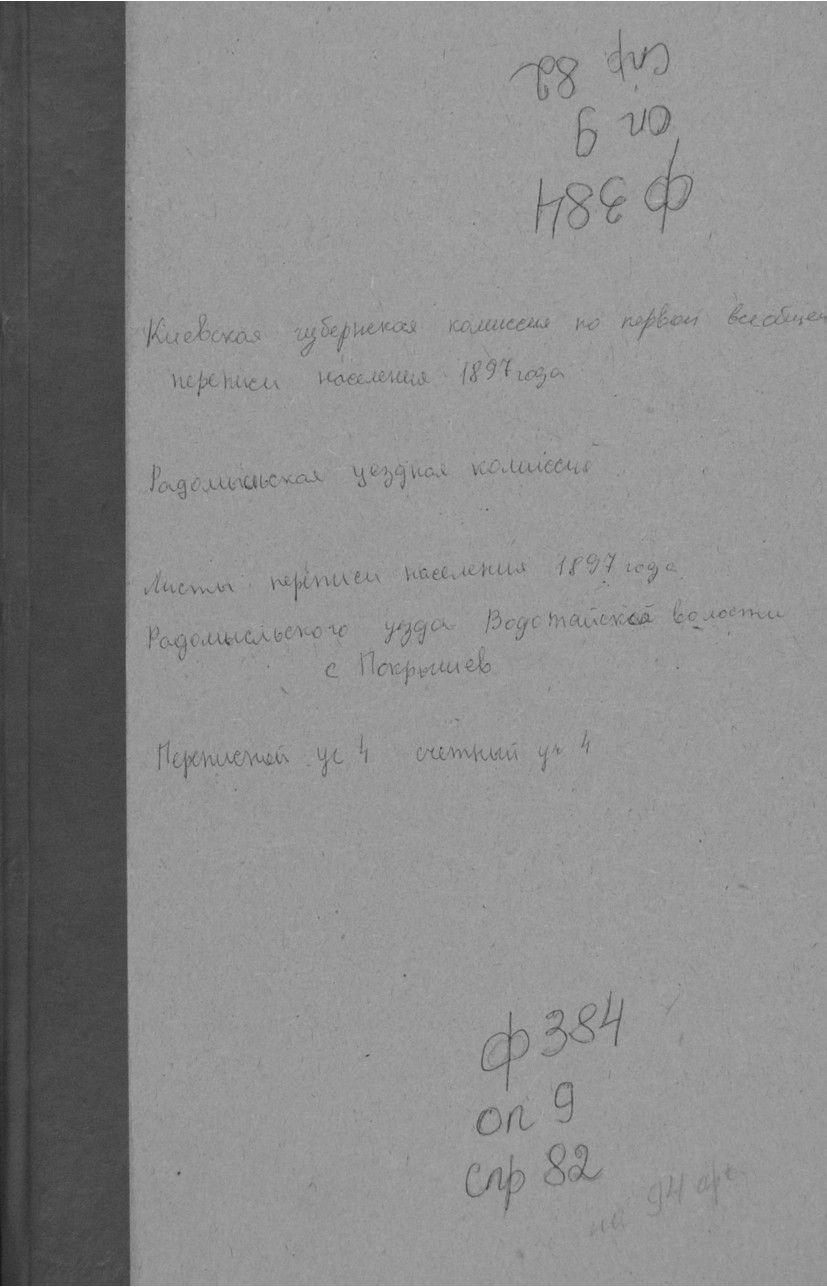 спр 82
оп 9
ф 384
Киевская губернская комиссия по первой всеобщей
переписи населения 1897 года
Радомысльская уездная комиссия
Листы переписи населения 1897 года
Радомысльского уезда Водотыйской волости
с Покрышев
Переписной уч 4 счетный уч 4
ф 384
оп 9
спр 82
на 94 арк